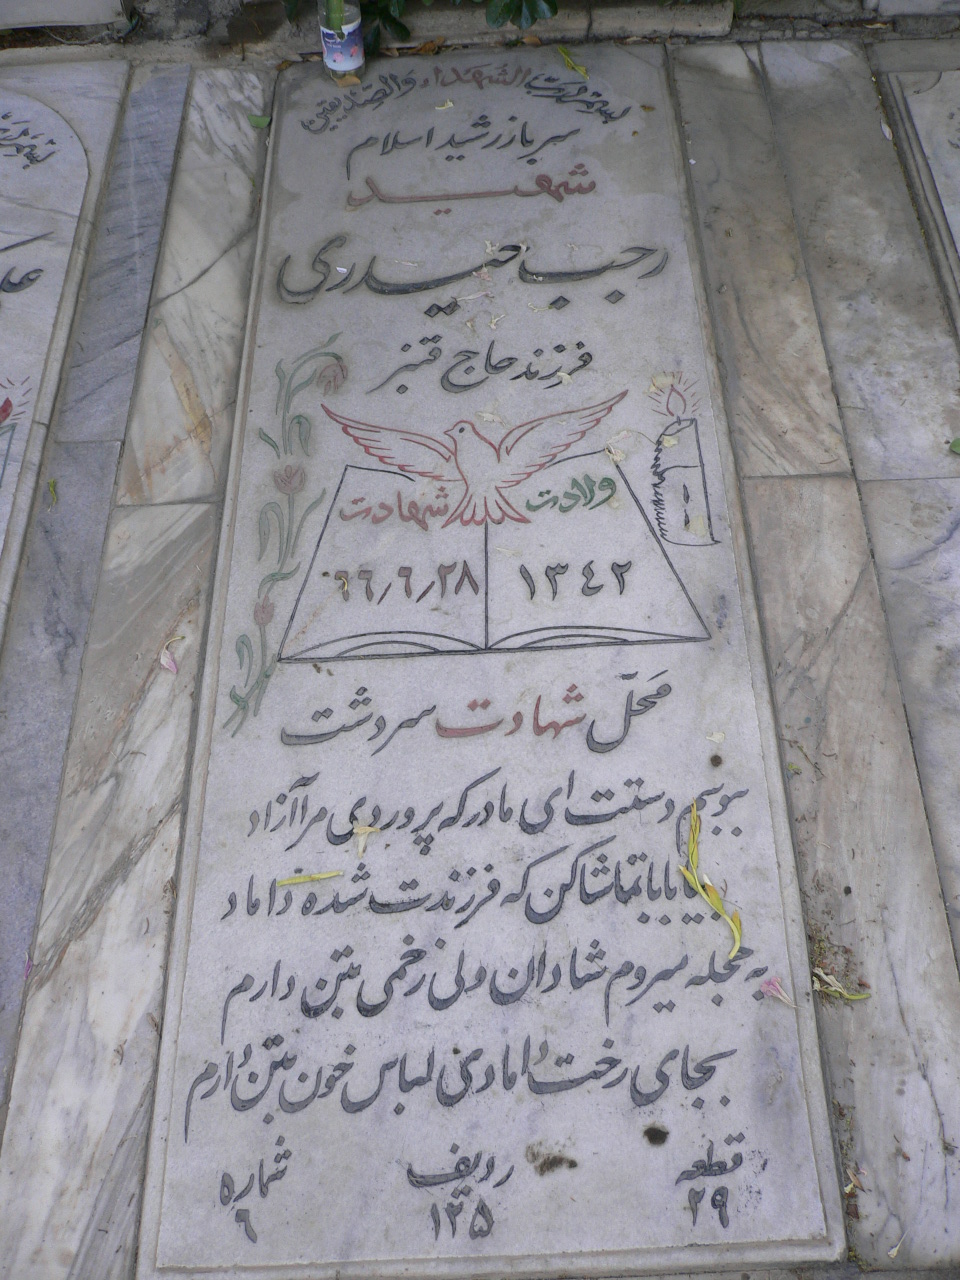 بسم رب الشهداء والصدیقین
سرباز رشید اسلام
شهید
رجب حیدری
فرزند حاج قنبر
ولادت شهادت
۱۳٤۲ ٦٦/٦/۲۸
محل شهادت سردشت
ببوسم دستت ای مادر که پروردی مرا آزاد
بیا بابا تماشا کن که فرزندت شده داماد
به حجله میروم شادان ولی زخمی بتن دارم
بجای رخت دامادی لباس خون بتن دارم
قطعه ردیف شماره
۲۹ ۱۲۵ ٦